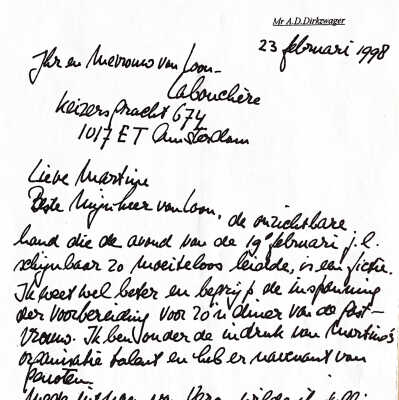 Mr A.D. Dirkzwager
23 februari 1998
Jhr en Mevrouw van Loon-
Labouchère
Keizersgracht 674
1017 ET Amsterdam
Lieve Martine
Beste Mijnheer van Loon, de onzichtbare
hand die de avond van de 19e februari j.l.
schijnbaar zo moeiteloos leidde, is een fictie.
Ik weet wel beter en begrijp de inspanning
der voorbereiding voor zo'n diner van de gast-
vrouw. Ik ben onder de indruk van Martine's
organisatie talent en heb er navenant van
genoten.
Mede namens